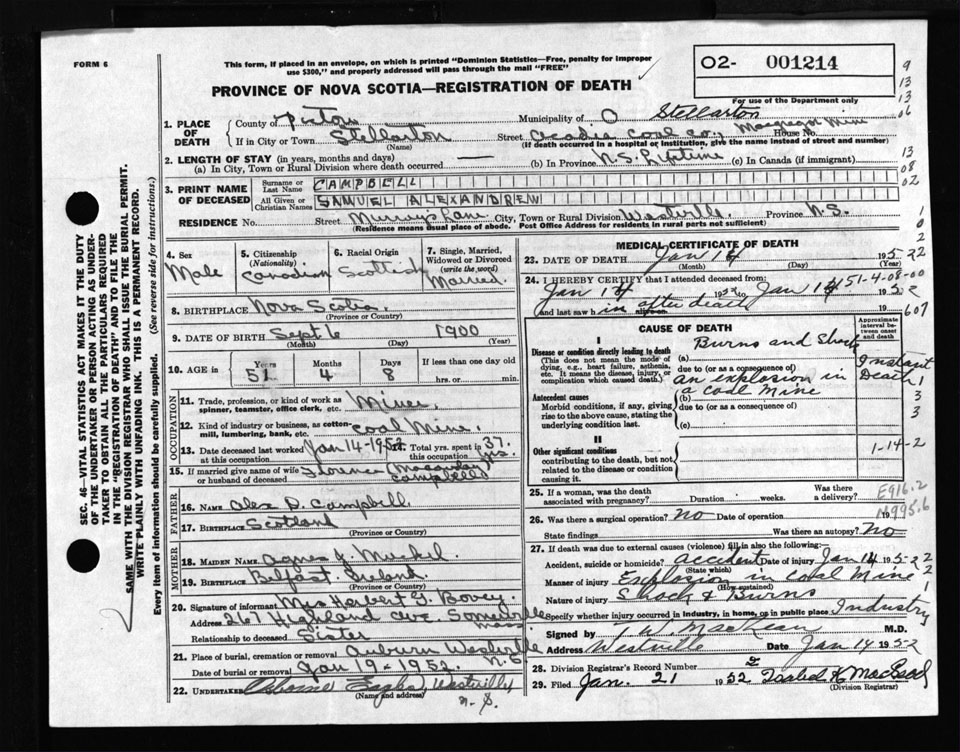 FORM 6
This form, if placed in an envelope, on which is printed "Dominion Statistics—Free, penalty for improper
use $300," and properly addressed will pass through the mail "FREE"
O2- 001214
For use of the Department only
PROVINCE OF NOVA SCOTIA—REGISTRATION OF DEATH
1. PLACE OF DEATH
County of Pictou Municipality of O Stellarton
If in City or Town Stellarton Street Acadia Coal Co., Macgregor Mine House No.
(Name) (If death occurred in a hospital or institution, give the name instead of street and number)
2. LENGTH OF STAY (in years, months and days)
(a) In City, Town or Rural Division where death occurred — (b) In Province N.S. Lifetime (c) In Canada (if immigrant)
3. PRINT NAME OF DECEASED
Surname or Last Name CAMPBELL
All Given or Christian Names SAMUEL ALEXANDREW
RESIDENCE No. Street Murrays Lane City, Town or Rural Division Westville Province N.S.
(Residence means usual place of abode. Post Office Address for residents in rural parts not sufficient)
4. Sex Male
5. Citizenship (Nationality) Canadian
6. Racial Origin Scottish
7. Single, Married, Widowed or Divorced (write the word) Married
8. BIRTHPLACE Nova Scotia
(Province or Country)
9. DATE OF BIRTH Sept 6 1900
(Month) (Day) (Year)
10. AGE in Years 51 Months 4 Days 8 If less than one day old hrs. or min.
OCCUPATION
11. Trade, profession, or kind of work as spinner, teamster, office clerk, etc. Miner
12. Kind of industry or business, as cotton-mill, lumbering, bank, etc. Coal Mine.
13. Date deceased last worked at this occupation Jan 14-1952 14. Total yrs. spent in this occupation 37 yrs.
15. If married give name of wife or husband of deceased Florence Campbell
FATHER
16. Name Alex D. Campbell
17. Birthplace Scotland
(Province or Country)
MOTHER
18. Maiden Name Agnes J.
19. Birthplace Belfast Ireland
(Province or Country)
20. Signature of informant Mrs Herbert G. Bovey
Address 267 Highland Ave Somerville Mass
Relationship to deceased Sister
21. Place of burial, cremation or removal Auburn Westville N.S.
Date of burial, cremation or removal Jan 19-1952.
22. Undertaker Westville,
(Name and address)
N.S.
MEDICAL CERTIFICATE OF DEATH
23. DATE OF DEATH Jan 14 1952
(Month) (Day) (Year)
24. I HEREBY CERTIFY that I attended deceased from:
Jan 14 1952 to Jan 14 1952
151-4-08-00
and last saw h in after death
607
CAUSE OF DEATH
Approximate interval between onset and death
I
Disease or condition directly leading to death
(This does not mean the mode of dying, e.g., heart failure, asthenia, etc. It means the disease, injury, or complication which caused death.)
(a) Burns and Shock
due to (or as a consequence of)
an explosion in
Instant Death
Antecedent causes
Morbid conditions, if any, giving rise to the above cause, stating the underlying condition last.
(b) a coal mine
due to (or as a consequence of)
(c)
II
Other significant conditions contributing to the death, but not related to the disease or condition causing it.
1-14-2
25. If a woman, was the death associated with pregnancy? Duration weeks. Was there a delivery?
E916.2
N995.6
26. Was there a surgical operation? No Date of operation 19
State findings Was there an autopsy? No
27. If death was due to external causes (violence) fill in also the following:
Accident, suicide or homicide? accident Date of injury Jan 14 1952
(State which)
Manner of injury Explosion in Coal Mine
(How sustained)
Nature of injury Shock & Burns
Specify whether injury occurred in industry, in home, or in public place Industry
Signed by M.D.
Address Westville Date Jan 14 1952
28. Division Registrar's Record Number 2
29. Filed Jan. 21 1952 Isabel K MacLeod
(Division Registrar)
SEC. 46—VITAL STATISTICS ACT MAKES IT THE DUTY
OF THE UNDERTAKER OR PERSON ACTING AS UNDER-
TAKER TO OBTAIN ALL THE PARTICULARS REQUIRED
IN THE "REGISTRATION OF DEATH" AND TO FILE THE
SAME WITH THE DIVISION REGISTRAR WHO SHALL ISSUE THE BURIAL PERMIT.
WRITE PLAINLY WITH UNFADING INK. THIS IS A PERMANENT RECORD.
Every item of information should be carefully supplied. (See reverse side for instructions.)
9
13
13
16
13
08
02